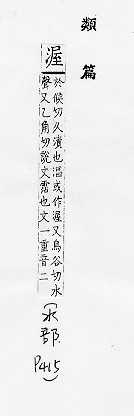 類篇
渥
於候切久漬也漚或作渥又烏谷切水
聲又乙角切說文霑也文一重音二
(水部 P415)